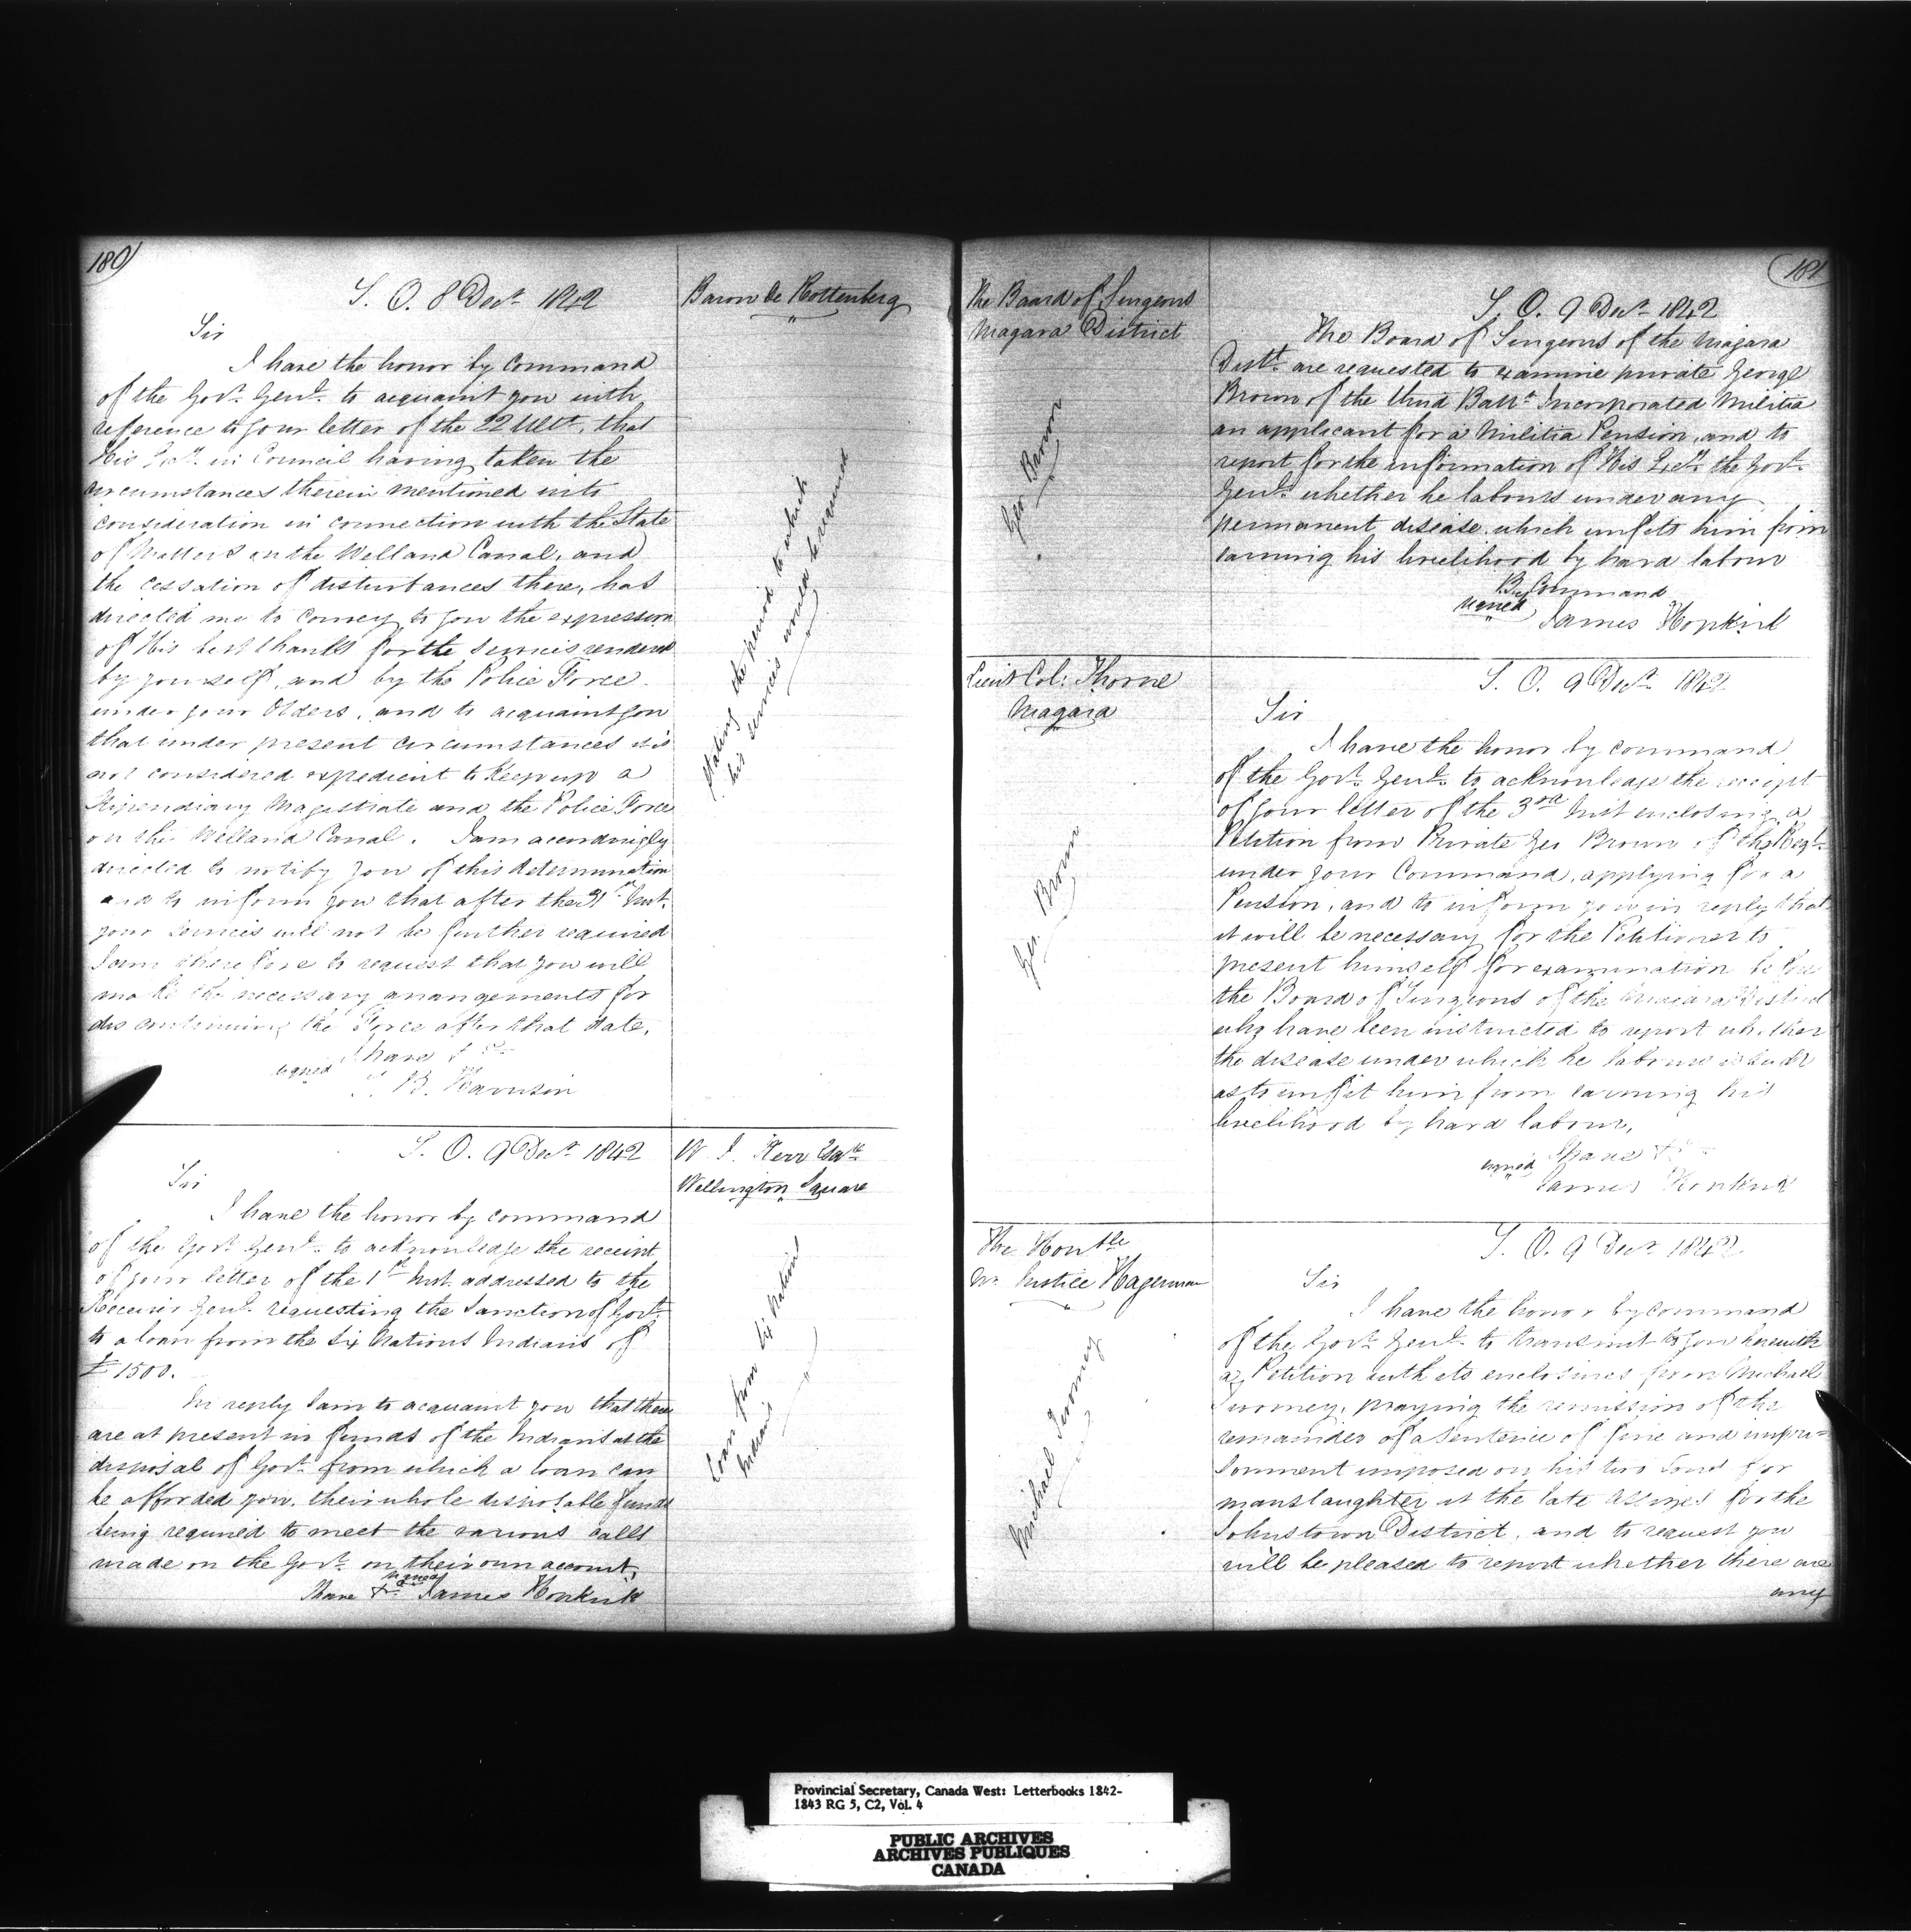 180
S. O. 8 Decr. 1842
Baron de Rottenberg
Sir
I have the honor by command
of the Govr. Genl. to acquaint you with
reference to your letter of the 22 Ulto. that
His Excy. in Council having taken the
circumstances therein mentioned into
consideration in connection with the State
of Matters on the Welland Canal, and
the cessation of disturbances there, has
directed me to convey to you the expression
of His best thanks for the services rendered
by yourself, and by the Police Force
under your Orders, and to acquaint you
that under present circumstances it is
not considered expedient to keep up a
Stipendiary Magistrate and the Police Force
on the Welland Canal. I am accordingly
directed to notify you of this determination
and to inform you that after the 31st Inst.
your services will not be further required
I am therefore to request that you will
make the necessary arrangements for
discontinuing the Force after that date.
I have &c
signed
S. B. Harrison
Stating the period to which
his services would be required
S. O. 9 Decr. 1842
W. J. Kerr Esqre
Wellington Square
Sir
I have the honor by command
of the Govr. Genl. to acknowledge the receipt
of your letter of the 1st Inst. addressed to the
Receiver Genl. requesting the Sanction of Govt.
to a loan from the Six Nations Indians of
£1500.
In reply I am to acquaint you that there
are at present no funds of the Indians at the
disposal of Govt. from which a loan can
be afforded you. their whole disposable funds
being required to meet the various calls
made on the Govt. on their own account,
I have &c signed James Hopkirk
Loan from Six Nations
Indians
181
The Board of Surgeons
Niagara District
S. O. 9 Decr. 1842
The Board of Surgeons of the Niagara
Distt. are requested to examine private George
Brown of the third Battn. Incorporated Militia
an applicant for a Militia Pension, and to
report for the information of His Excy. the Govr.
Genl. whether he labours under any
permanent disease which unfits him from
earning his livelihood by hard labour
By Command
signed
James Hopkirk
Geo Brown
Lieut Col. Thorne
Niagara
S. O. 9 Decr. 1842
Sir
I have the honor by command
of the Govr. Genl. to acknowledge the receipt
of your letter of the 3rd Inst enclosing a
Petition from Private Geo Brown of the Regt.
under your Command, applying for a
Pension, and to inform you in reply that
it will be necessary for the Petitioner to
present himself for examination before
the Board of Surgeons of the Niagara District
who have been instructed to report whether
the disease under which he labours is such
as to unfit him from earning his
livelihood by hard labour,
I have &c
signed
James Hopkirk
Geo. Brown
The Honble
Mr. Justice Hagerman
S. O. 9 Decr 1842
Sir
I have the honor by command
of the Govr. Genl. to transmit to you herewith
a Petition with its enclosures from Michael
Twomey, praying the remission of the
remainder of a Sentence of fine and impri=
sonment imposed on his two Sons for
manslaughter at the late Assizes for the
Johnstown District, and to request you
will be pleased to report whether there are
any
Michael Twomey
Provincial Secretary, Canada West: Letterbooks 1842-
1843 RG 5, C2, Vol. 4
PUBLIC ARCHIVES
ARCHIVES PUBLIQUES
CANADA